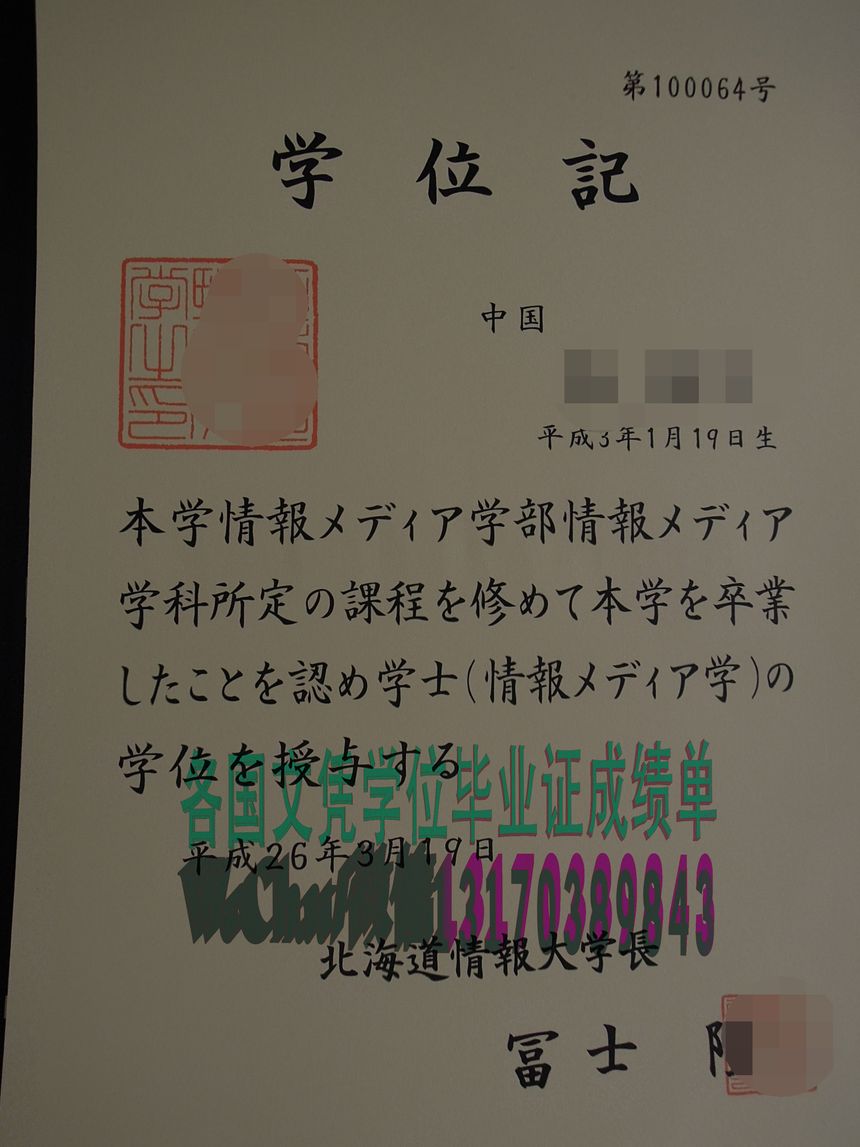 第100064号
学位記
中国
平成3年1月19日生
本学情報メディア学部情報メディア
学科所定の課程を修めて本学を卒業
したことを認め学士(情報メディア学)の
学位を授与する
各国文凭学位毕业证成绩单
平成26年3月19日
WeChat微信13170389843
北海道情報大学長
冨士